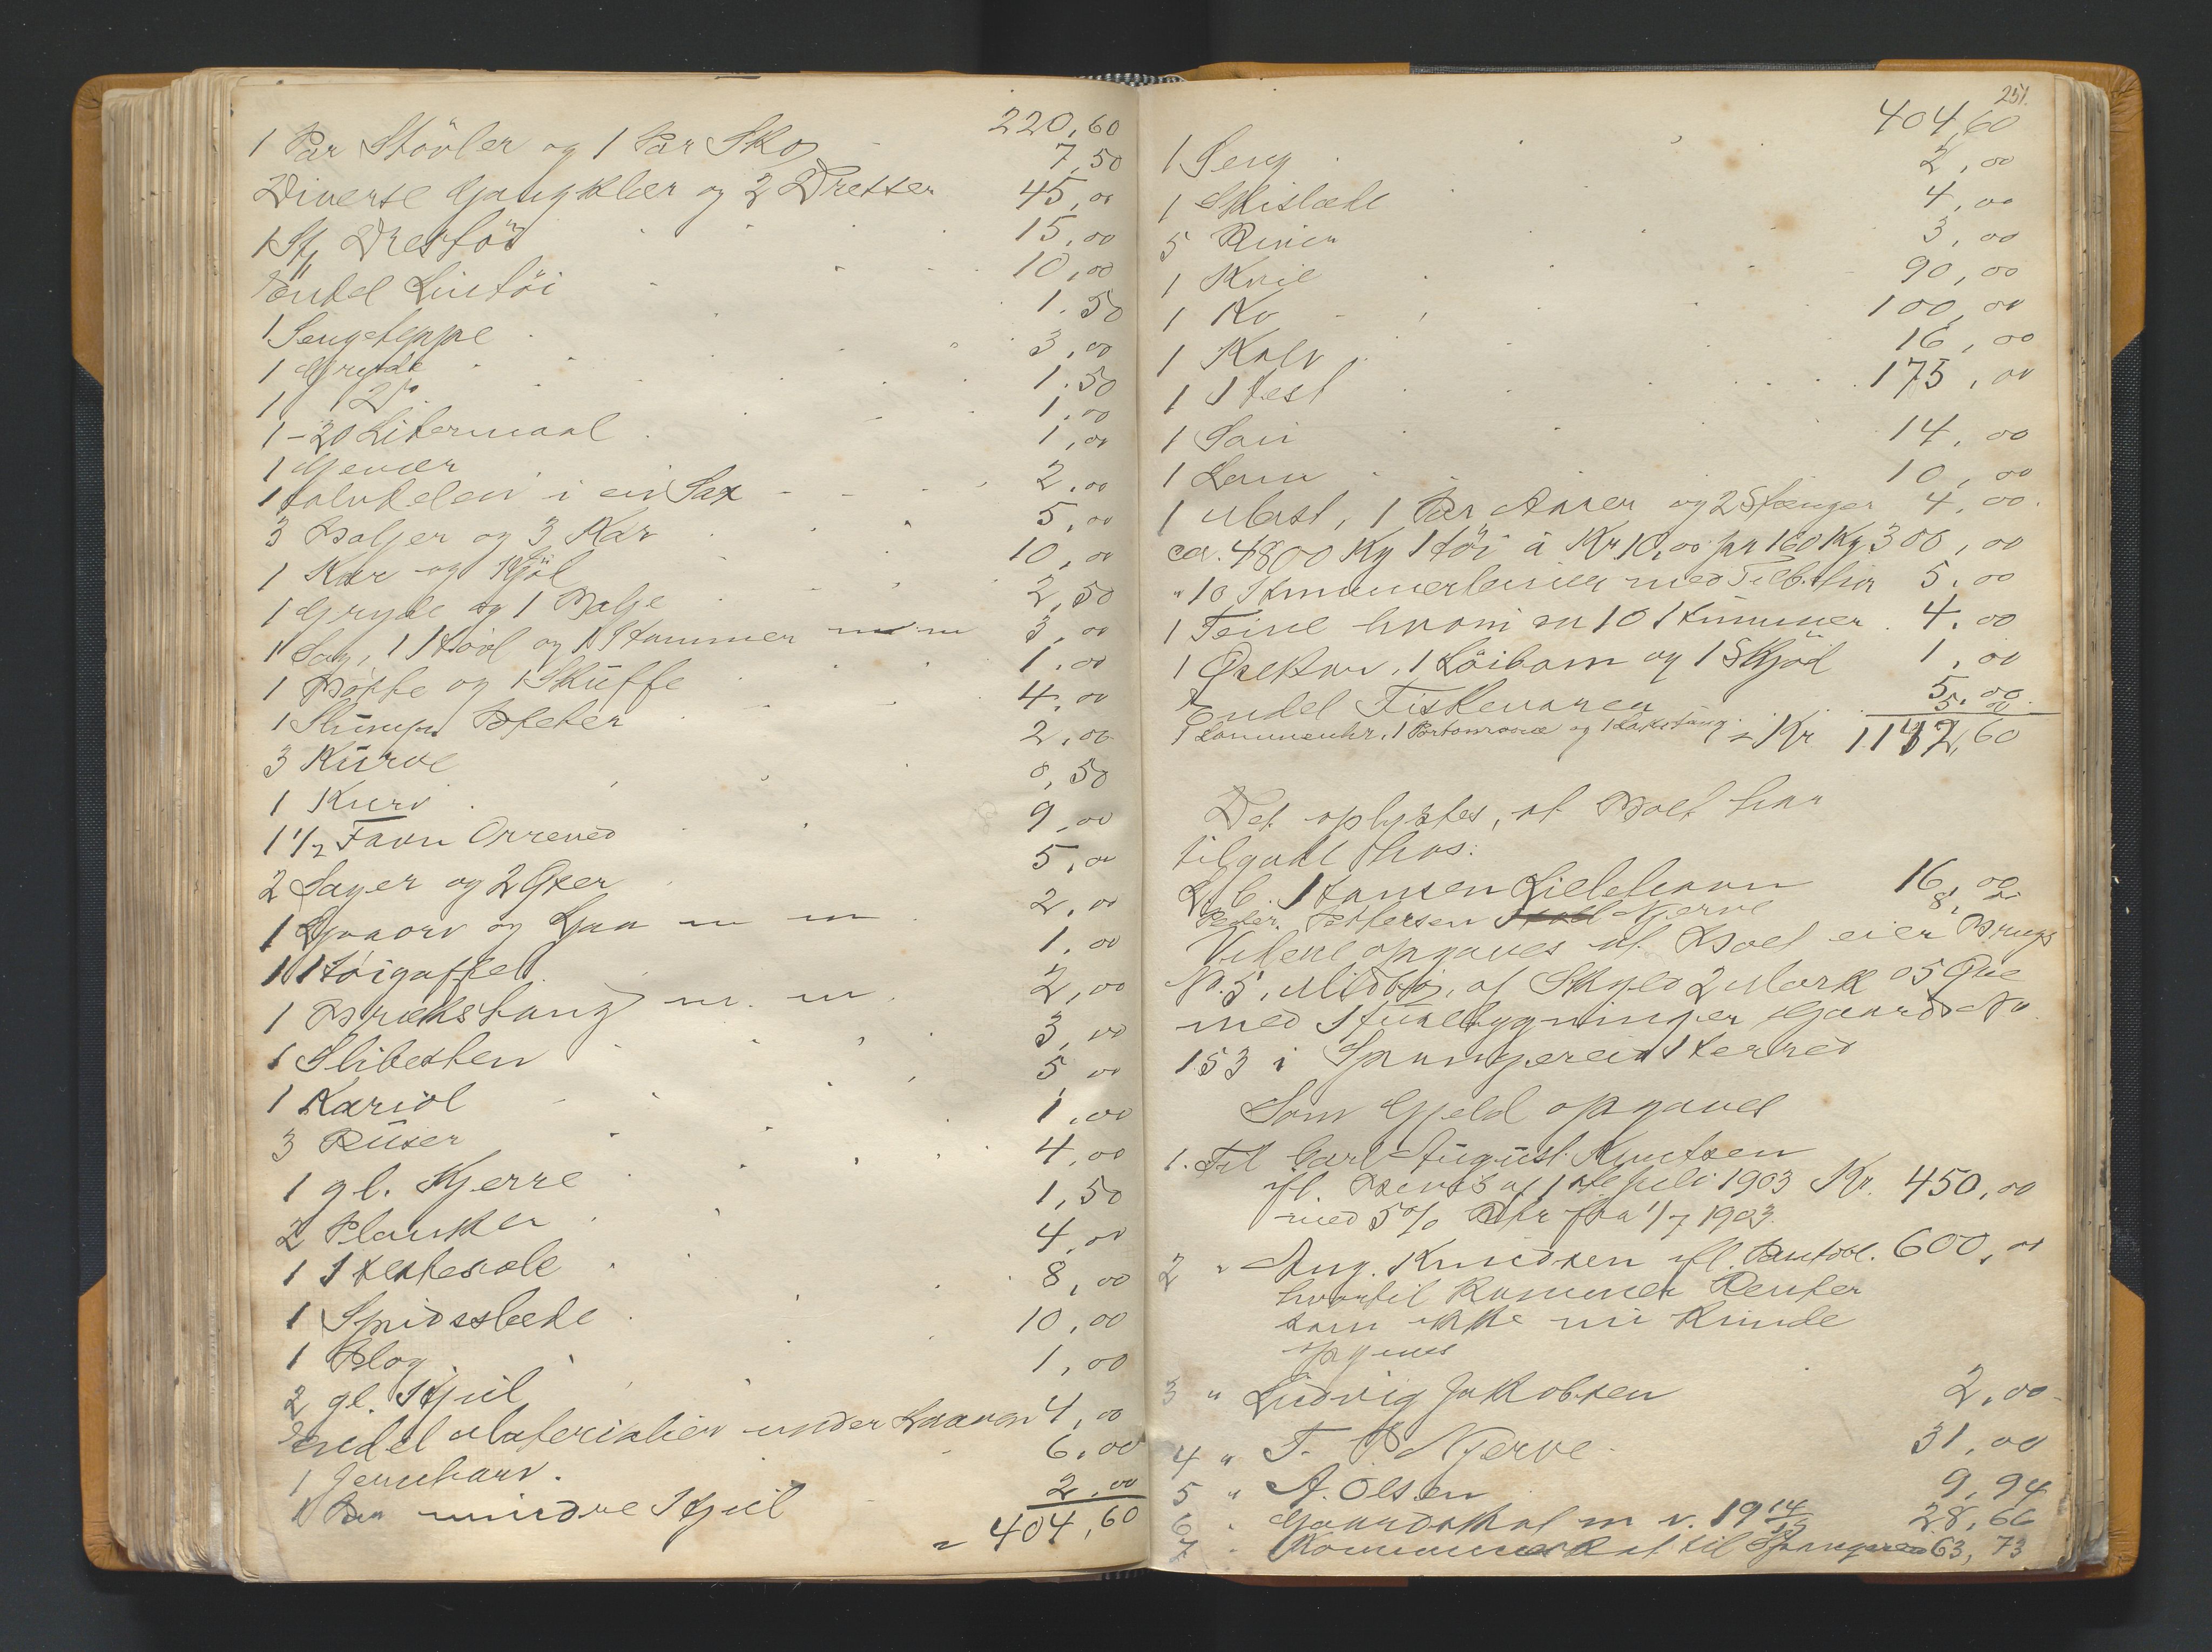 220,60
1 Par Støvler og 1 Par Sko 7,50
Diverse Gangklær og 2 Dresser 45,00
1 St. Drestøi 15,00
Endel Lintøi 10,00
1 Sengeteppe 1.50
1 Gryde 3,00
1 do 1.50
1 - 20 Litermaal 1,00
1 Gevær 1,00
1 halvdelen i en Sax 2,00
3 Baljer og 3 Kar 5,00
1 Kar og Kjøl 10,00
1 Gryde og 1 Balje 2,50
1 Sag, 1 Høvl og 1 Hammer m m 3,00
1 Bøtte og 1 Skuffe 1.00
1 Slump Poteter 4,00
3 Kurve 2,00
1 Kurv 0,50
1 1/2 Favn Orreved 9,00
2 Sager og 2 Øxer 5,00
1 Ljaaorv og Ljaa m m 2,00
1 Høigaffel 1,00
1 Brækstang m. m. 2,00
1 Slibesten 3,00
1 Kariol 5 00
3 Ruser 1,00
1 gl. Kjerre 4,00
2 Planker 1,50
1 Hestesæle 4,00
1 Spidsslæde 8,00
1 Plog 10,00
2 gl. Hjul 1,00
Endel Materialier under Laaven 4,00
1 Jernharv. 6,00
1 Par mindre Hjul 2,00
= 404,60
251.
404,60
1 Seng 2,00
1 Skislæde 4,00
5 River 3,00
1 Kvie 90,00
1 Ko 100,00
1 Kalv 16,00
1 Hest 175,00
1 Sau 14,00
1 Lam 10,00
1 Mast, 1 Par Aarer og 2 Stænger 4,00.
ca. 4800 Kg Høi à Kr 10,00 pr 160 Kg 300,00
" 10 Hummerteiner med Tilbehør 5.00
1 Teine hvori ca 10 Hummer 4.00
1 Øsekar, 1 Løibom og 1 Skjød 1,00
Endel Fiskevarer 5,00
1 Lommeuhr, 1 Portomonæ og 1 Laxstang. 5,00
= Kr 1182,60
Det oplystes, at Boet har
tilgode hos:
L. C. Hansen Lillehavn 16,00
Peder Pettersen Njerve 8,00
Videre opgaves at Boet eier Brugs
No. 5, Midbø, af Skyld 2 Mark 05 Øre
med Huse bygninger Gaards No
153 i Spangereid Herred
Som Gjeld opgaves
1. Til Carl August Knutsen
ifl. Bevis af 1ste Juli 1903 Kr. 450,00
med 5% Rtr fra 1/7 1903.
2 " Aug. Knudsen ifl. Pantobl. 600,00
hvortil kommer Renter
som ikke nu kunde
opgives
3 " Ludvig Jakobsen 2,00
4 " T. P. Njerve 31,00
5 " A. Olsen 9,94
6 " Gaardskat m v. 19 14/15 28,66
7 " Kommuneskat til Spangereid 63,73